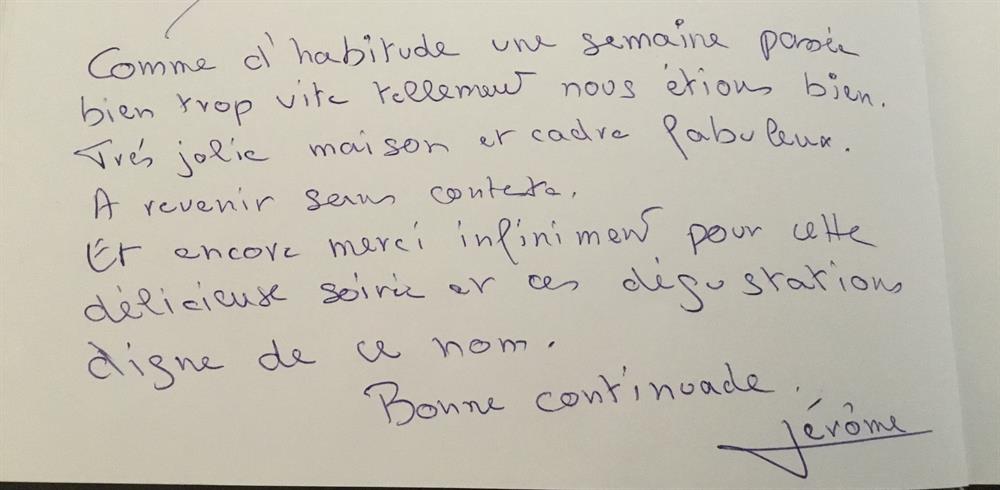 Comme d'habitude une semaine passée
bien trop vite tellement nous étions bien.
Trés jolie maison et cadre fabuleux.
A revenir sans conteste.
Et encore merci infiniment pour cette
délicieuse soirée et ces dégustations
digne de ce nom.
Bonne continuade.
Jérôme